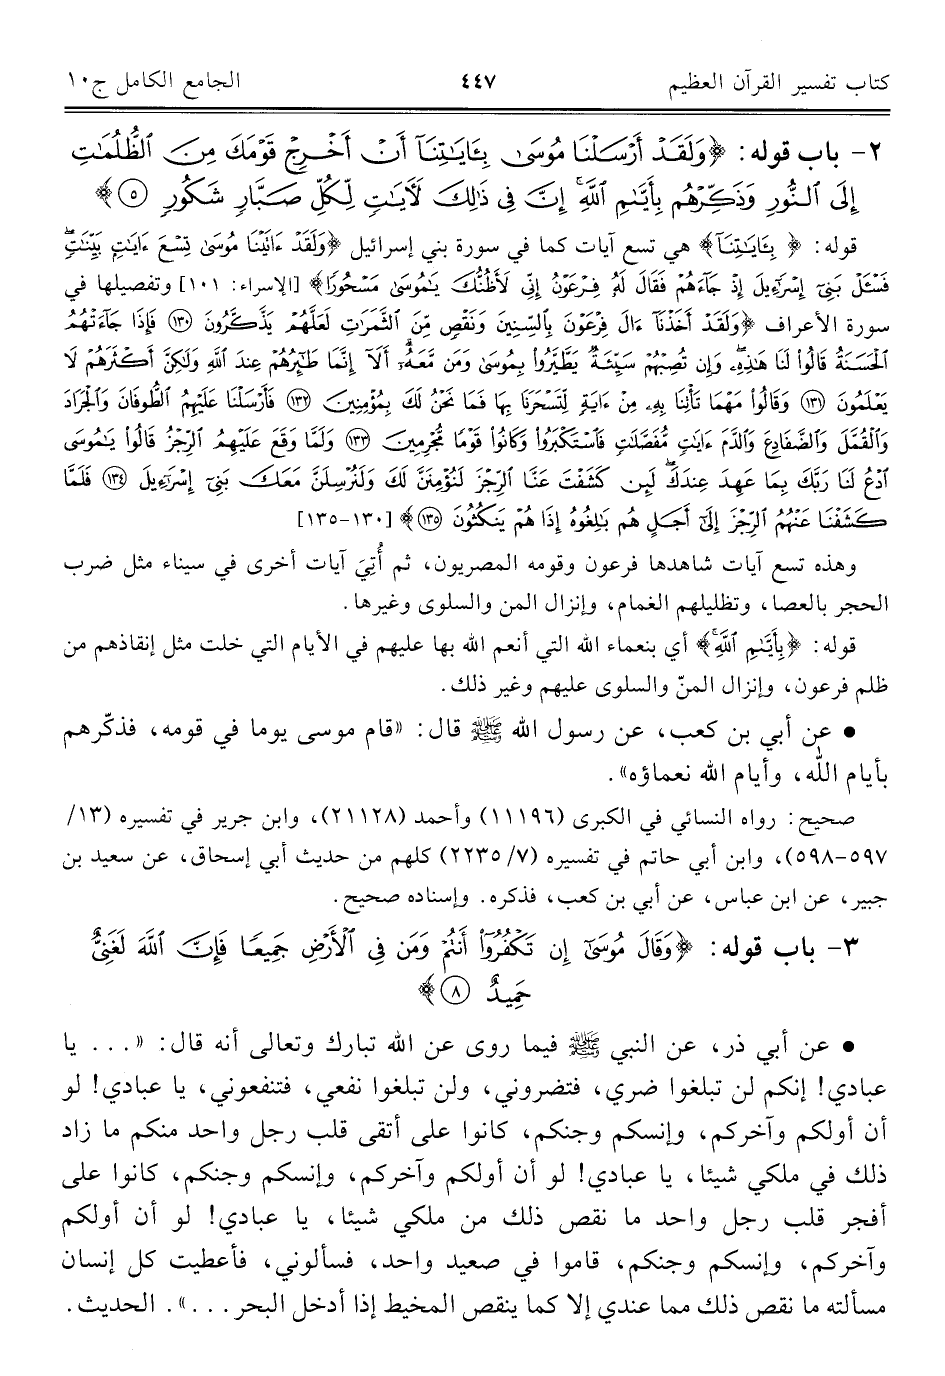 كتاب تفسير القرآن العظيم ٤٤٧ الجامع الكامل ج١٠
٢- باب قوله: ﴿وَلَقَدْ أَرْسَلْنَا مُوسَىٰ بِـَٔايَـٰتِنَآ أَنْ أَخْرِجْ قَوْمَكَ مِنَ ٱلظُّلُمَـٰتِ
إِلَى ٱلنُّورِ وَذَكِّرْهُم بِأَيَّىٰمِ ٱللَّهِ ۚ إِنَّ فِى ذَٰلِكَ لَـَٔايَـٰتٍ لِّكُلِّ صَبَّارٍ شَكُورٍ ۝٥﴾
قوله: ﴿بِـَٔايَـٰتِنَآ﴾ هي تسع آيات كما في سورة بني إسرائيل ﴿وَلَقَدْ ءَاتَيْنَا مُوسَىٰ تِسْعَ ءَايَـٰتٍۭ بَيِّنَـٰتٍ ۖ
فَسْـَٔلْ بَنِىٓ إِسْرَٰٓءِيلَ إِذْ جَآءَهُمْ فَقَالَ لَهُۥ فِرْعَوْنُ إِنِّى لَأَظُنُّكَ يَـٰمُوسَىٰ مَسْحُورًا﴾ [الإسراء: ١٠١] وتفصيلها في
سورة الأعراف ﴿وَلَقَدْ أَخَذْنَآ ءَالَ فِرْعَوْنَ بِٱلسِّنِينَ وَنَقْصٍ مِّنَ ٱلثَّمَرَٰتِ لَعَلَّهُمْ يَذَّكَّرُونَ ۝١٣٠ فَإِذَا جَآءَتْهُمُ
ٱلْحَسَنَةُ قَالُوا۟ لَنَا هَـٰذِهِۦ ۖ وَإِن تُصِبْهُمْ سَيِّئَةٌ يَطَّيَّرُوا۟ بِمُوسَىٰ وَمَن مَّعَهُۥٓ ۗ أَلَآ إِنَّمَا طَـٰٓئِرُهُمْ عِندَ ٱللَّهِ وَلَـٰكِنَّ أَكْثَرَهُمْ لَا
يَعْلَمُونَ ۝١٣١ وَقَالُوا۟ مَهْمَا تَأْتِنَا بِهِۦ مِنْ ءَايَةٍ لِّتَسْحَرَنَا بِهَا فَمَا نَحْنُ لَكَ بِمُؤْمِنِينَ ۝١٣٢ فَأَرْسَلْنَا عَلَيْهِمُ ٱلطُّوفَانَ وَٱلْجَرَادَ
وَٱلْقُمَّلَ وَٱلضَّفَادِعَ وَٱلدَّمَ ءَايَـٰتٍ مُّفَصَّلَـٰتٍ فَٱسْتَكْبَرُوا۟ وَكَانُوا۟ قَوْمًا مُّجْرِمِينَ ۝١٣٣ وَلَمَّا وَقَعَ عَلَيْهِمُ ٱلرِّجْزُ قَالُوا۟ يَـٰمُوسَى
ٱدْعُ لَنَا رَبَّكَ بِمَا عَهِدَ عِندَكَ ۖ لَئِن كَشَفْتَ عَنَّا ٱلرِّجْزَ لَنُؤْمِنَنَّ لَكَ وَلَنُرْسِلَنَّ مَعَكَ بَنِىٓ إِسْرَٰٓءِيلَ ۝١٣٤ فَلَمَّا
كَشَفْنَا عَنْهُمُ ٱلرِّجْزَ إِلَىٰٓ أَجَلٍ هُم بَـٰلِغُوهُ إِذَا هُمْ يَنكُثُونَ ۝١٣٥﴾ [١٣٠-١٣٥]
وهذه تسع آيات شاهدها فرعون وقومه المصريون، ثم أُتِيَ آيات أخرى في سيناء مثل ضرب
الحجر بالعصا، وتظليلهم الغمام، وإنزال المن والسلوى وغيرها.
قوله: ﴿بِأَيَّىٰمِ ٱللَّهِ ۚ﴾ أي بنعماء الله التي أنعم الله بها عليهم في الأيام التي خلت مثل إنقاذهم من
ظلم فرعون، وإنزال المنّ والسلوى عليهم وغير ذلك.
• عن أبي بن كعب، عن رسول الله ﷺ قال: «قام موسى يوما في قومه، فذكّرهم
بأيام الله، وأيام الله نعماؤه».
صحيح: رواه النسائي في الكبرى (١١١٩٦) وأحمد (٢١١٢٨)، وابن جرير في تفسيره (١٣/
٥٩٧-٥٩٨)، وابن أبي حاتم في تفسيره (٧/ ٢٢٣٥) كلهم من حديث أبي إسحاق، عن سعيد بن
جبير، عن ابن عباس، عن أبي بن كعب، فذكره. وإسناده صحيح.
٣- باب قوله: ﴿وَقَالَ مُوسَىٰٓ إِن تَكْفُرُوٓا۟ أَنتُمْ وَمَن فِى ٱلْأَرْضِ جَمِيعًا فَإِنَّ ٱللَّهَ لَغَنِىٌّ
حَمِيدٌ ۝٨﴾
• عن أبي ذر، عن النبي ﷺ فيما روى عن الله تبارك وتعالى أنه قال: «... يا
عبادي! إنكم لن تبلغوا ضري، فتضروني، ولن تبلغوا نفعي، فتنفعوني، يا عبادي! لو
أن أولكم وآخركم، وإنسكم وجنكم، كانوا على أتقى قلب رجل واحد منكم ما زاد
ذلك في ملكي شيئا، يا عبادي! لو أن أولكم وآخركم، وإنسكم وجنكم، كانوا على
أفجر قلب رجل واحد ما نقص ذلك من ملكي شيئا، يا عبادي! لو أن أولكم
وآخركم، وإنسكم وجنكم، قاموا في صعيد واحد، فسألوني، فأعطيت كل إنسان
مسألته ما نقص ذلك مما عندي إلا كما ينقص المخيط إذا أدخل البحر...». الحديث.